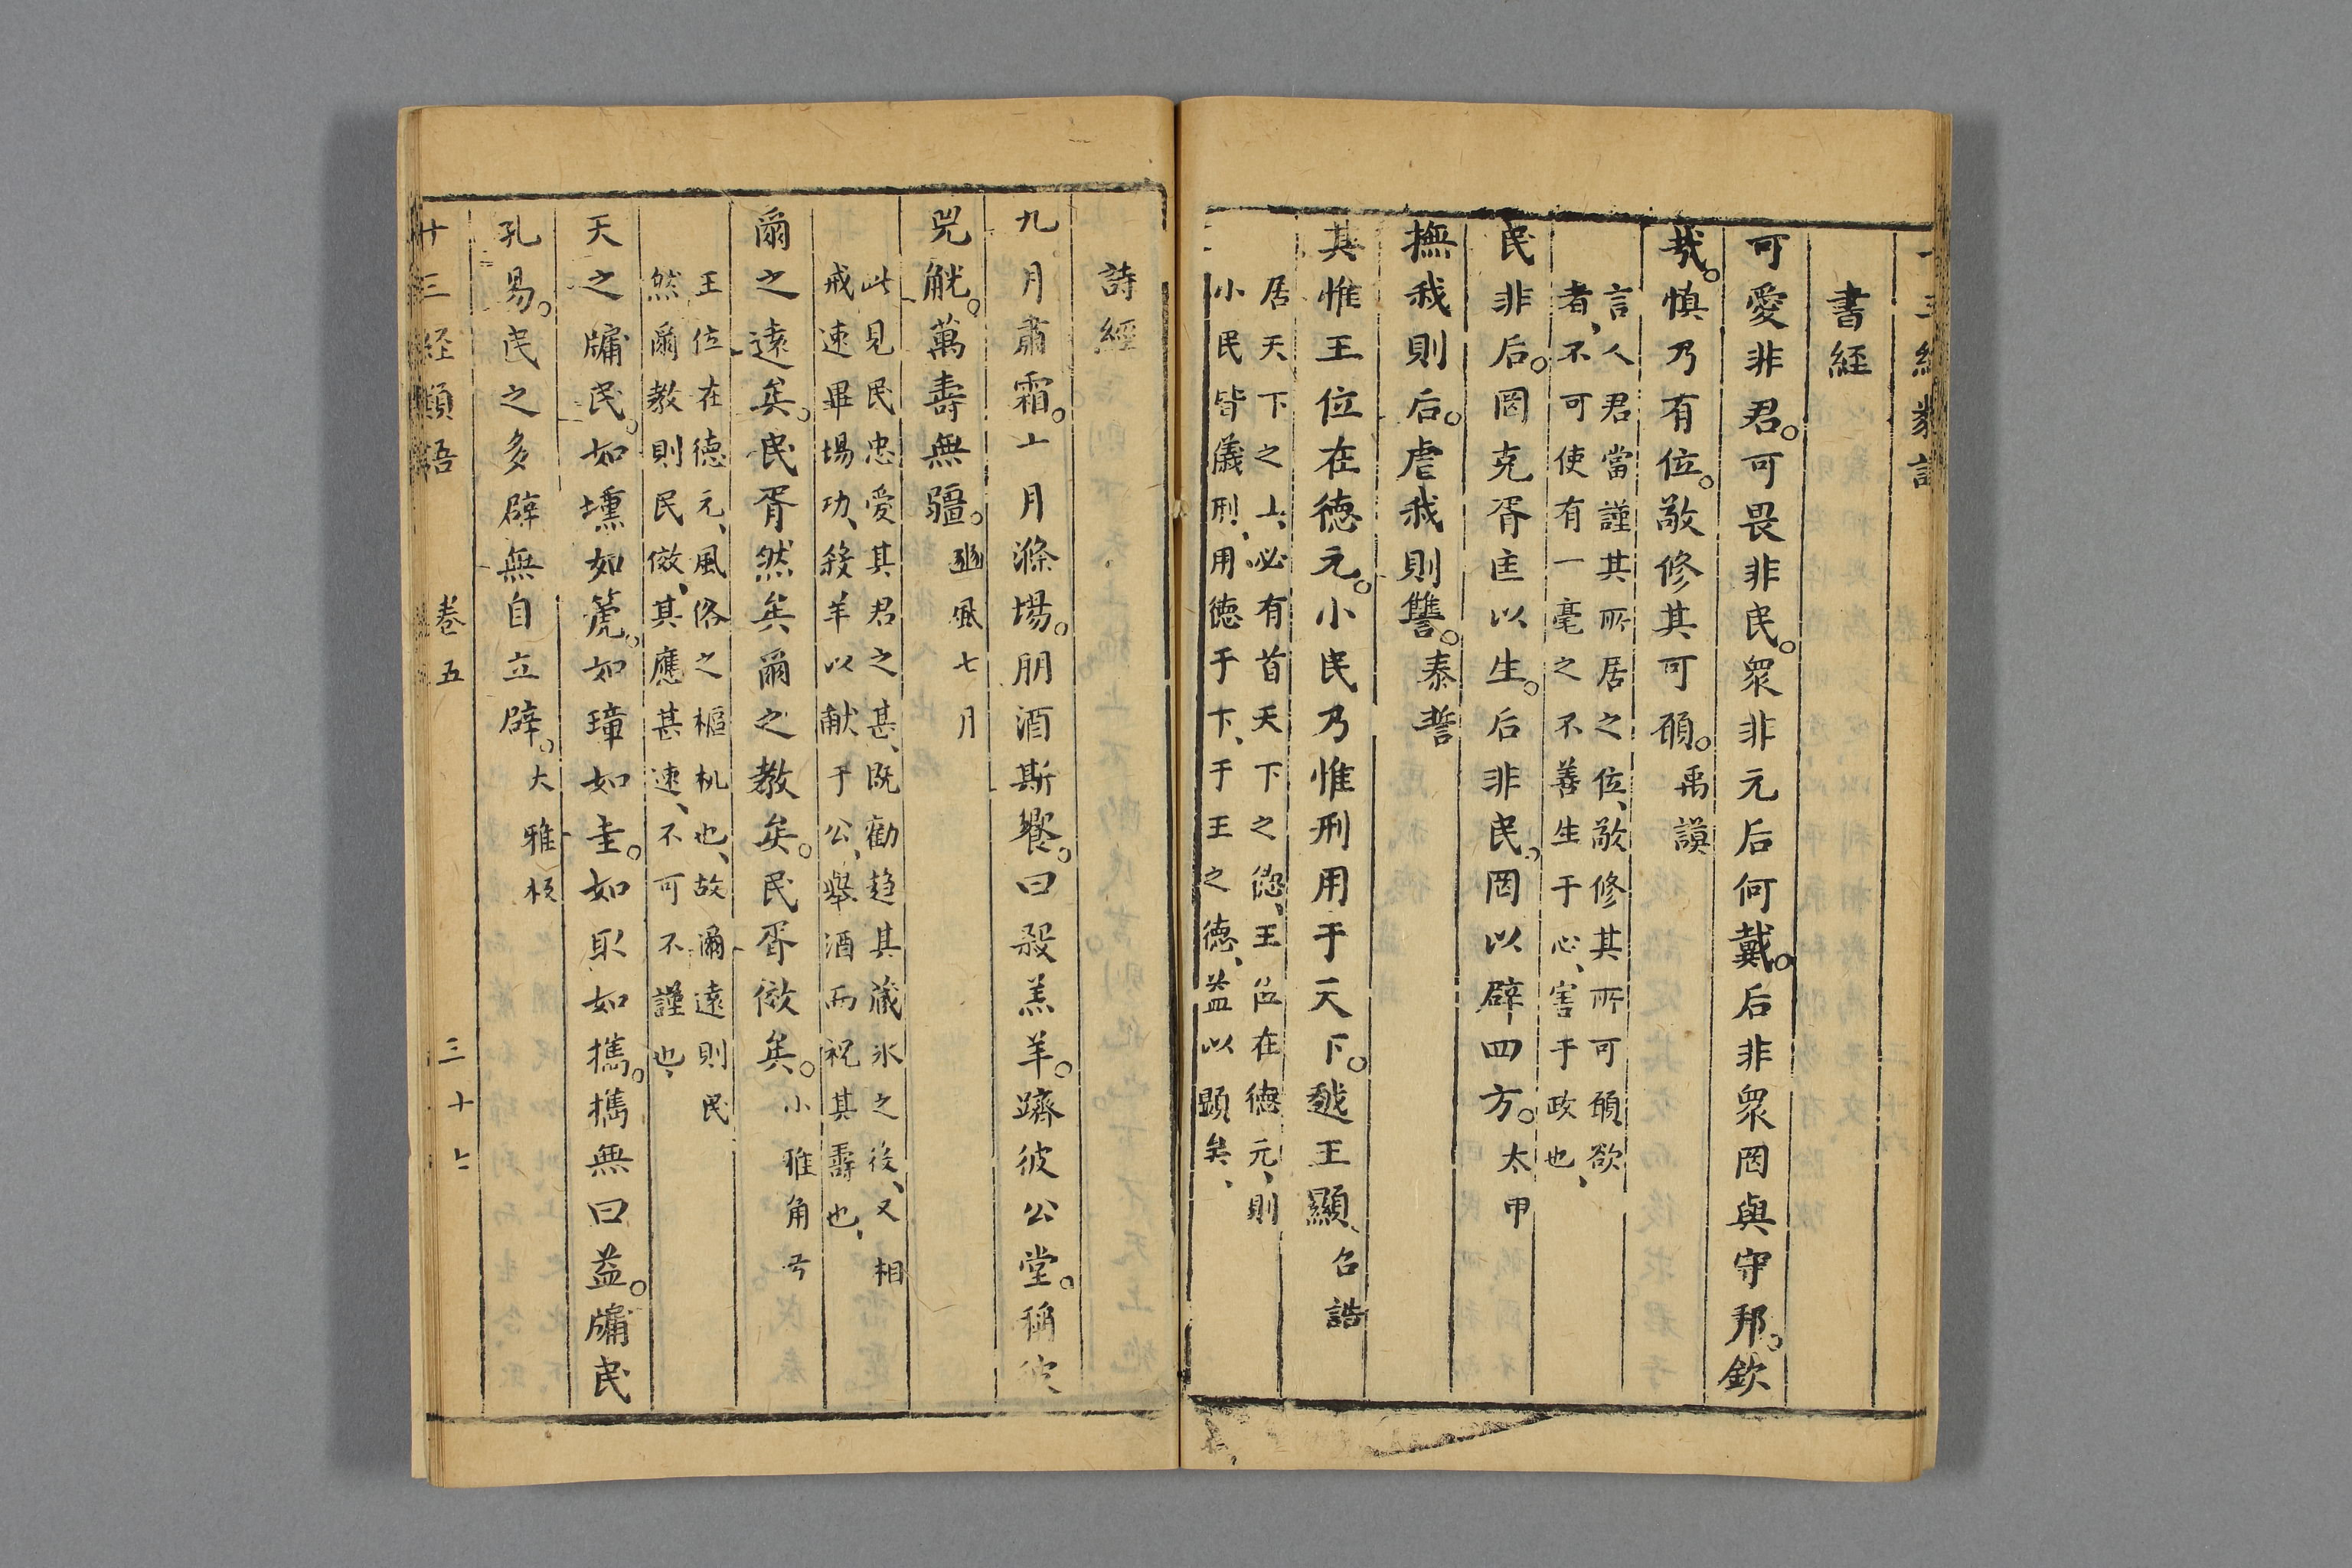 書経
可愛非君。可畏非民。衆非元后何戴。后非衆罔與守邦。欽
哉。慎乃有位。敬修其可願。禹謨
言人君當謹其所居之位、敬修其所可願欲
者、不可使有一毫之不善生于心、害于政也、
民非后。罔克胥匡以生。后非民。罔以辟四方。太甲
撫我則后。虐我則讐。泰誓
其惟王位在德元。小民乃惟刑用于天下。越王顯、召誥
居天下之上、必有首天下之德、王位在德元、則
小民皆儀刑、用德于下、于王之德、益以顯矣、
詩經
九月肅霜。十月滌場。朋酒斯饗。曰殺羔羊。躋彼公堂。稱彼
兕觥。萬壽無疆。豳風七月
此見民忠愛其君之甚、既勸趋其藏氷之後、又相
戒速畢場功、殺羊以献于公、舉酒而祝其壽也、
爾之遠矣。民胥然矣爾之教矣。民胥傚矣。小雅角弓
王位在德元、風俗之樞机也、故爾遠則民
然爾教則民傚、其應甚速、不可不謹也、
天之牖民。如壎如篪。如璋如圭。如取如攜。攜無曰益。牖民
孔易。民之多辟無自立辟。大雅板
十三経類語 卷五 三十七